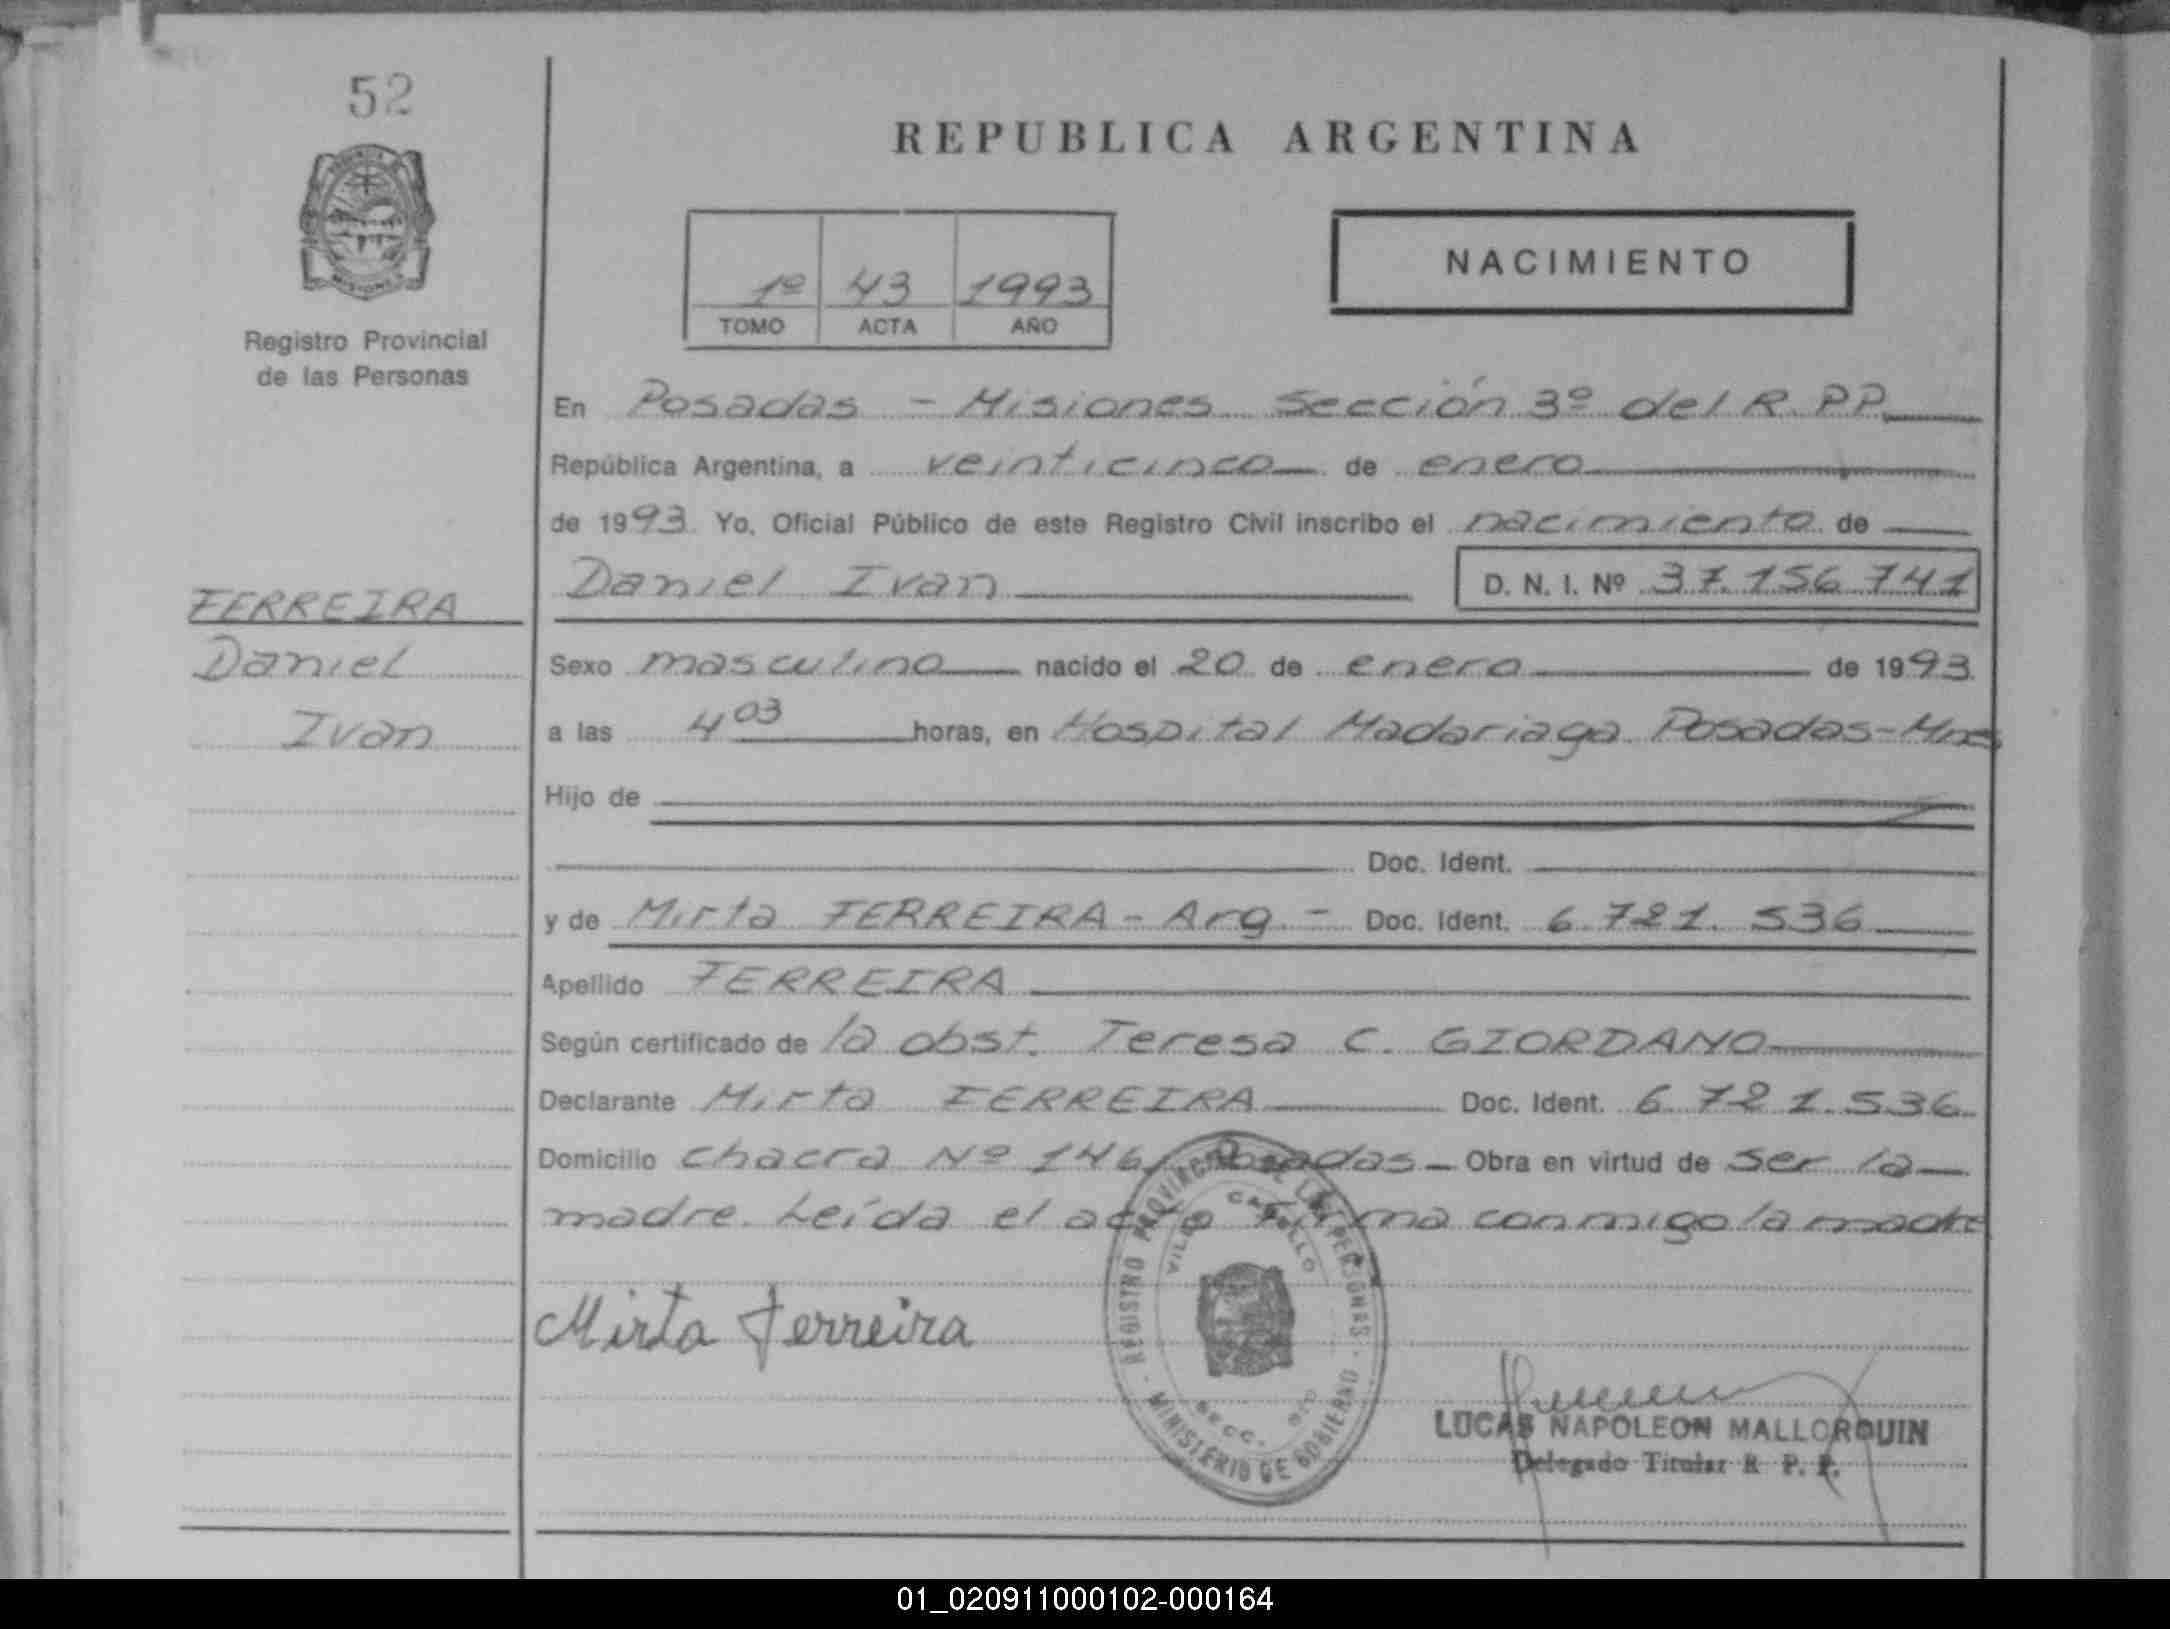 52
REPUBLICA ARGENTINA
NACIMIENTO
1º 43 1993
TOMO ACTA AÑO
Registro Provincial
de las Personas
En Posadas - Misiones Sección 3º del R. PP.
República Argentina, a veinticinco de enero
de 1993. Yo, Oficial Público de este Registro Civil inscribo el nacimiento de
Daniel Ivan D. N. I. Nº 37.156.741
FERREIRA
Daniel
Ivan
Sexo masculino nacido el 20 de enero de 1993
a las 4 03 horas, en Hospital Madariaga Posadas-Mnes
Hijo de
Doc. Ident.
y de Mirta FERREIRA - Arg. - Doc. Ident. 6.721.536
Apellido FERREIRA
Según certificado de la obst. Teresa C. GIORDANO
Declarante Mirta FERREIRA Doc. Ident. 6.721.536
Domicilio Chacra Nº 146, Posadas Obra en virtud de ser la
madre. Leída el acta firma conmigo la madre
REGISTRO PROVINCIAL DE LAS PERSONAS
MINISTERIO DE GOBIERNO
VILLA CABELLO
SECC.
Mirta Ferreira
LUCAS NAPOLEON MALLORQUIN
Delegado Titular R. P. P.
01_020911000102-000164